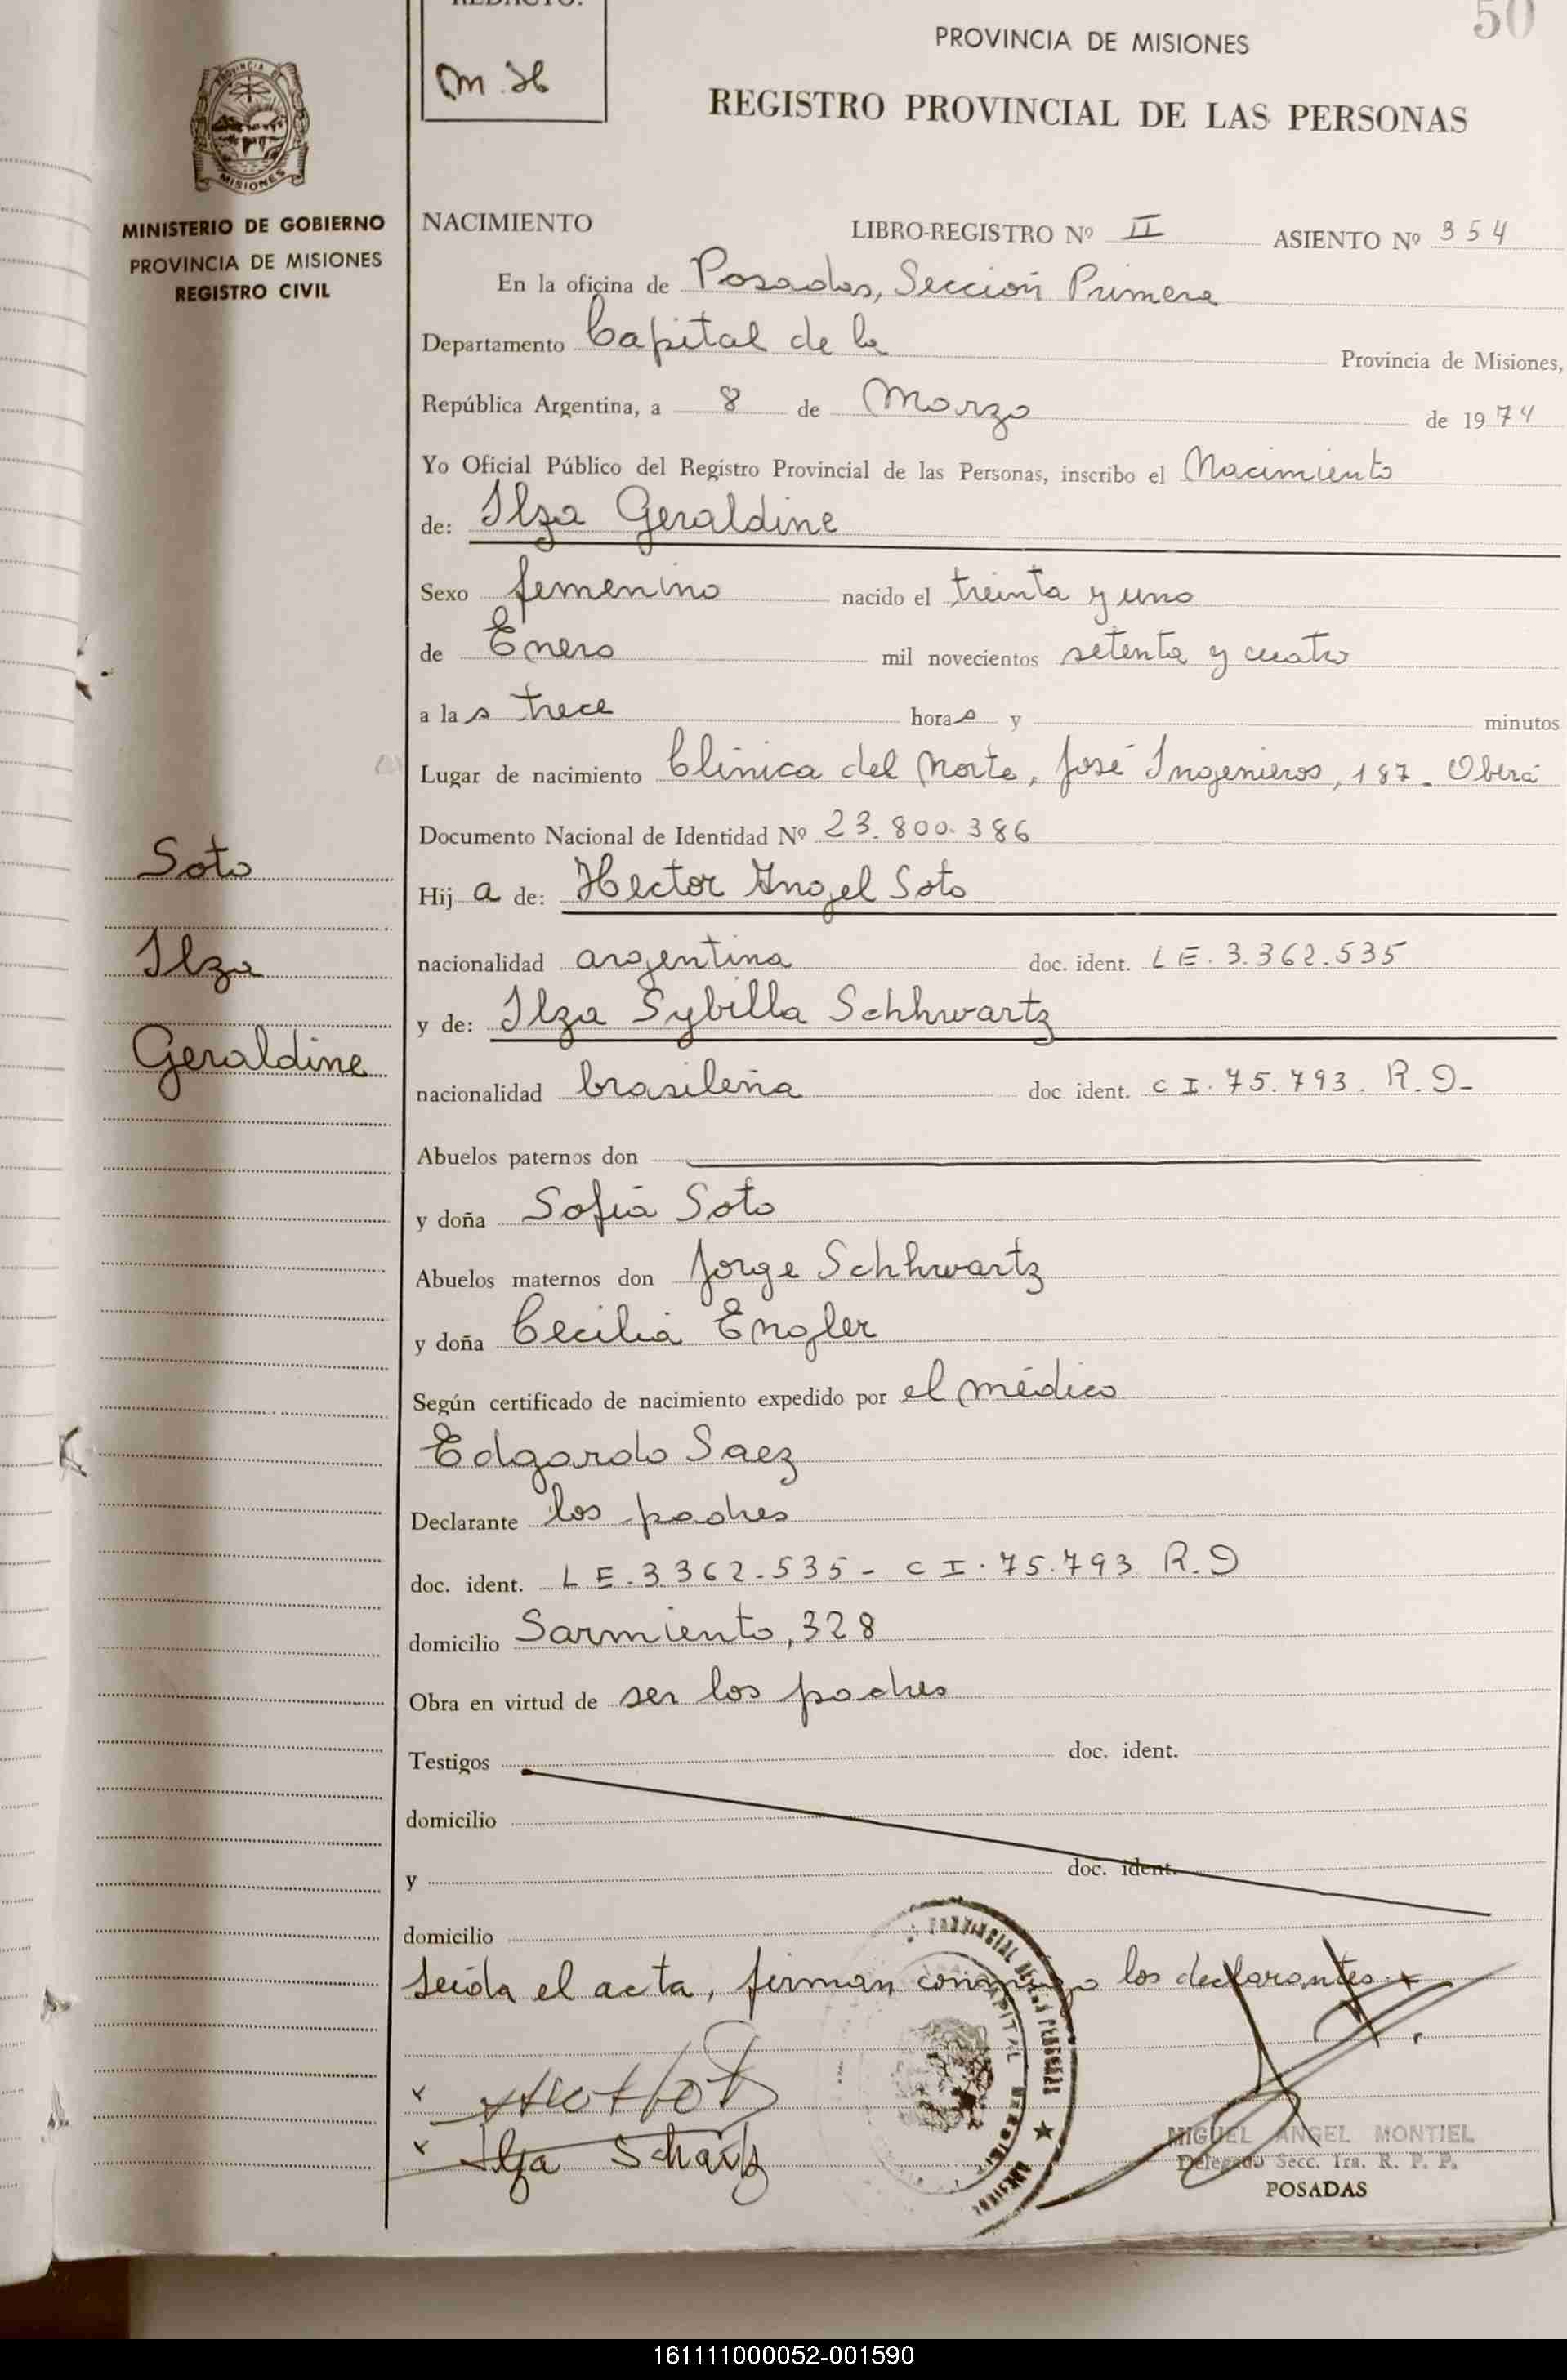 REDACTO:
m.H
50
PROVINCIA DE MISIONES
REGISTRO PROVINCIAL DE LAS PERSONAS
PROVINCIA DE
MISIONES
MINISTERIO DE GOBIERNO
PROVINCIA DE MISIONES
REGISTRO CIVIL
NACIMIENTO LIBRO-REGISTRO Nº II ASIENTO Nº 354
En la oficina de Posadas, Sección Primera
Departamento Capital de la Provincia de Misiones,
República Argentina, a 8 de Marzo de 1974
Yo Oficial Público del Registro Provincial de las Personas, inscribo el Nacimiento
de: Ilza Geraldine
Sexo femenino nacido el treinta y uno
de Enero mil novecientos setenta y cuatro
a las trece horas y minutos
Lugar de nacimiento Clínica del Norte, José Ingenieros, 187 - Oberá
Documento Nacional de Identidad Nº 23.800.386
Soto
Hija de: Hector Angel Soto
Ilza
nacionalidad argentina doc. ident. LE. 3.362.535
y de: Ilza Sybilla Schhwartz
Geraldine
nacionalidad brasileña doc ident. CI. 75.793. R.D-
Abuelos paternos don
y doña Sofía Soto
Abuelos maternos don Jorge Schhwartz
y doña Cecilia Engler
Según certificado de nacimiento expedido por el médico
Edgardo Saez
Declarante los padres
doc. ident. LE. 3.362.535 - CI. 75.793 R.D
domicilio Sarmiento, 328
Obra en virtud de ser los padres
Testigos doc. ident.
domicilio
y doc. ident.
domicilio
Leída el acta, firman conmigo los declarantes.
x
x Ilza Schartz
PROVINCIAL DE LAS PERSONAS
CAPITAL
MISIONES
MIGUEL ANGEL MONTIEL
Delegado Secc. 1ra. R. P. P.
POSADAS
161111000052-001590